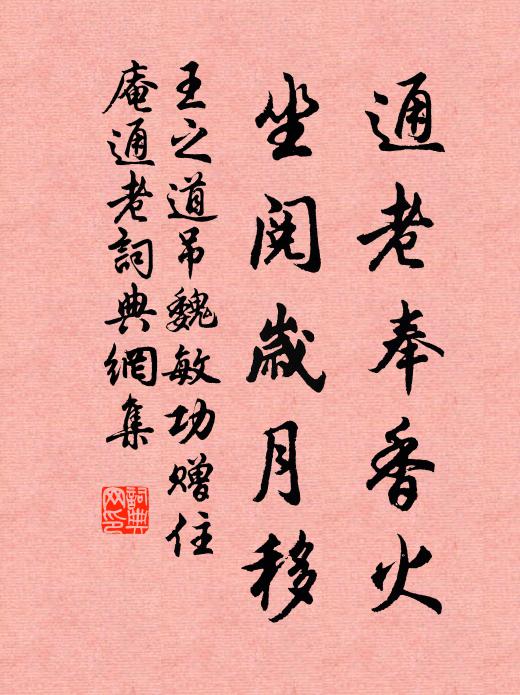 通老奉香火
坐閱歲月移
王之道吊魏敏功贈住
庵通老詞典網集
詞典网印